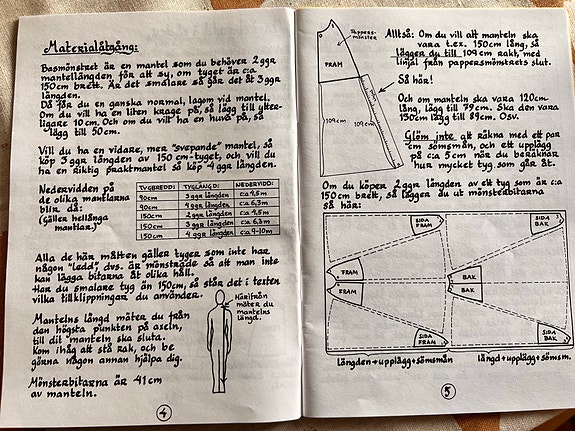 Materialåtgång:
Basmönstret är en mantel som du behöver 2 ggr
mantellängden för att sy, om tyget är c:a
150 cm brett. Är det smalare så går det åt 3 ggr
längden.
Då får du en ganska normal, lagom vid mantel.
Om du vill ha en liten krage på, så lägg till ytter-
ligare 10 cm. Och om du vill ha en huva på, så
lägg till 50 cm.
Vill du ha en vidare, mer "svepande" mantel, så
köp 3 ggr längden av 150 cm-tyget, och vill du
ha en riktig praktmantel så köp 4 ggr längden.
Nedervidden på
de olika
mantlarna
blir då:
(Gäller hellånga
mantlar.)
TYGBREDD: TYGLÄNGD: NEDERVIDD:
90cm 3 ggr längden c:a 4,5 m
90cm 4 ggr längden c:a 6,3 m
150cm 2 ggr längden c:a 4,5 m
150cm 3 ggr längden c:a 6,3 m
150cm 4 ggr längden c:a 9-10 m
Alla de här måtten gäller tyger som inte har
någon "ledd", dvs. är mönstrade så att man inte
kan lägga bitarna åt olika håll.
Har du smalare tyg än 150cm, så står det i texten
vilka tillklippningar du använder.
Mantelns längd mäter du från
den högsta punkten på axeln,
till dit manteln ska sluta.
Kom ihåg att stå rak, och be
gärna någon annan hjälpa dig.
Mönsterbitarna är 41 cm
av manteln.
Härifrån
mäter du
mantelns
längd.
4
Pappers-
mönster
FRAM
109 cm
109 cm
Alltså: Om du vill att manteln ska
vara t.ex. 150cm lång, så
lägger du till 109 cm rakt, med
linjal från pappersmönstrets slut.
Så här!
Och om manteln ska vara 120cm
lång, lägg till 79cm. Ska den vara
130cm lägg till 89cm. Osv.
Glöm inte att räkna med ett par
cm sömsmån, och ett upplägg
på c:a 5cm när du beräknar
hur mycket tyg som går åt.
Om du köper 2 ggr längden av ett tyg som är c:a
150cm brett, så lägger du ut mönsterbitarna
så här:
SIDA
FRAM
SIDA
BAK
FRAM
BAK
FRAM
BAK
SIDA
FRAM
SIDA
BAK
längden+upplägg+sömsmån
längd+upplägg+sömsm.
5